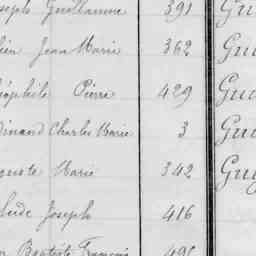 seph Guillaume 391 Gu
ien Jean Marie 362 Gu
éophile Pierre 429 Gu
dinand Charles Marie 3 Gu
guste Marie 342 Gu
lude Joseph 416
Baptiste François 49